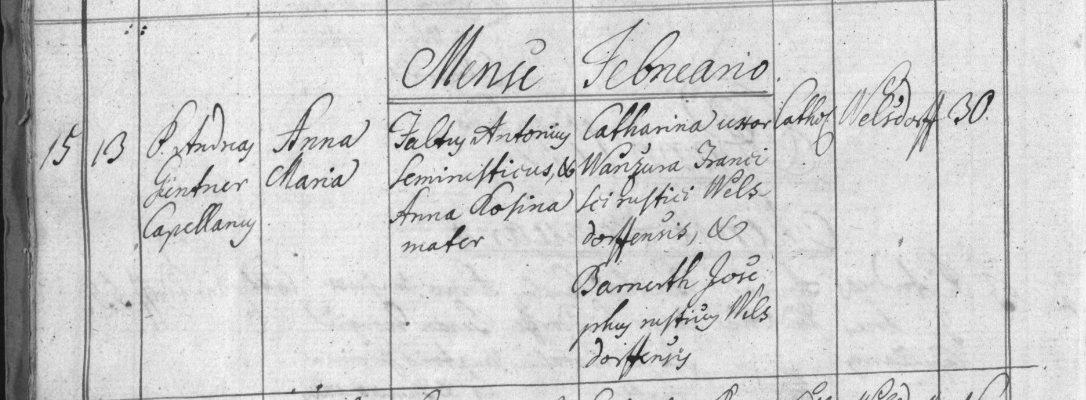 Mense Februario.
15 13 P. Andreas Güntner Capellanus
Anna Maria
Faltus Antonius
semirusticus, &
Anna Rosina
mater
Catharina uxor
Wanzura Franci
sci rustici Wels
dorffensis, &
Barnerth Jose
phus rusticus Wels
dorffensis
Cathol. Welsdorff 30.